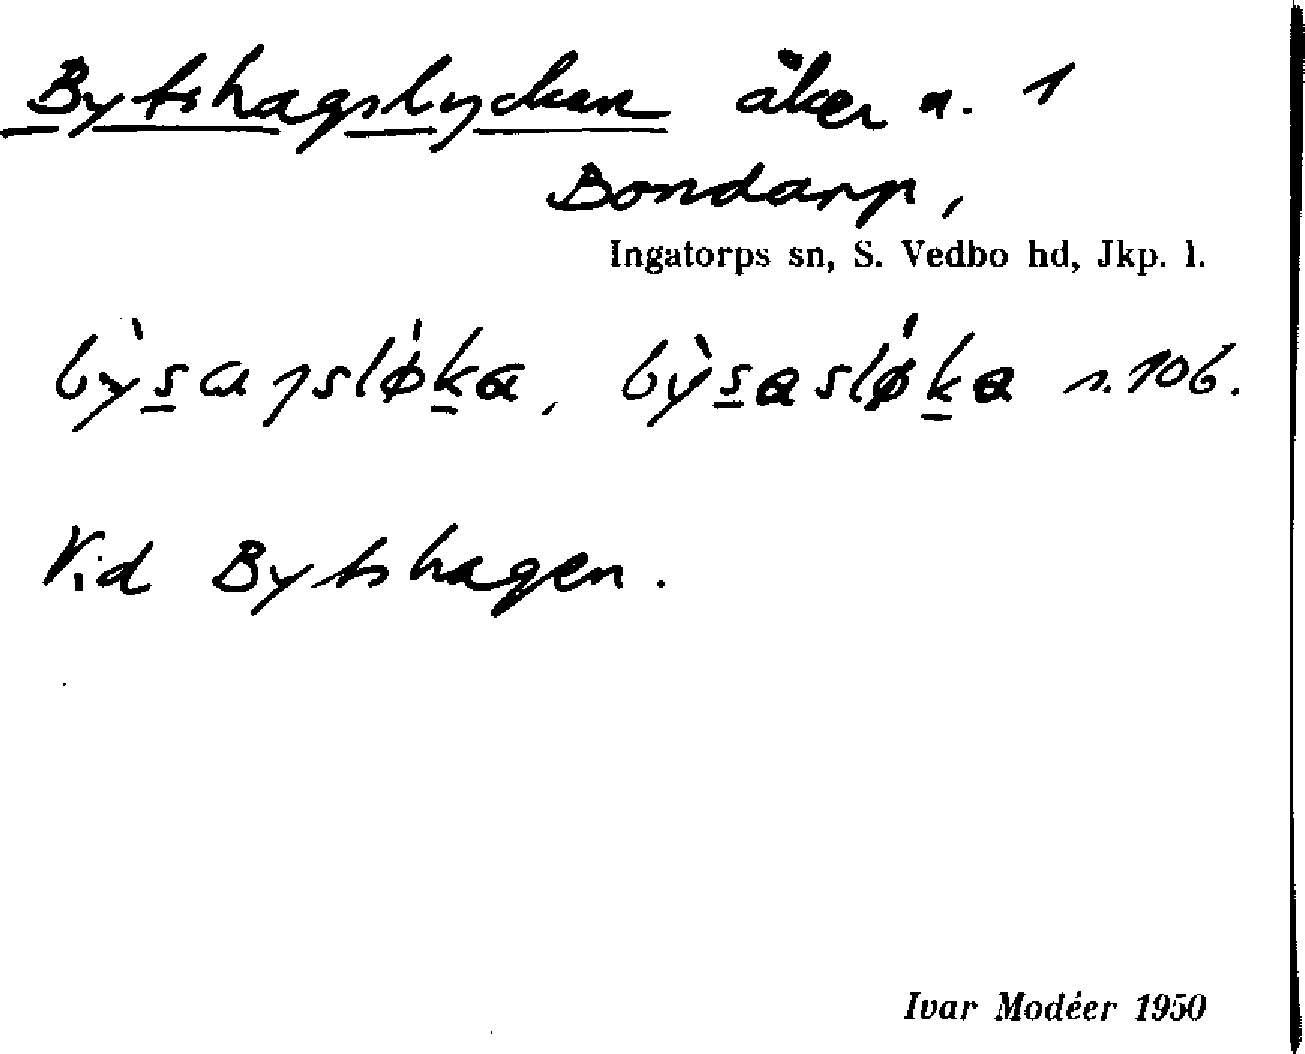 Bytshagslyckan åker n. 1
Bondarp,
Ingatorps sn, S. Vedbo hd, Jkp. l.
bỳsaɡsløka, bỳsasløka s. 106.
Vid Bytshagen.
Ivar Modéer 1950